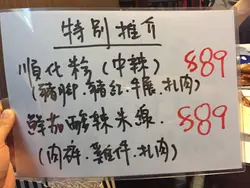 特別推介
順化粉（中辣） $89
（豬脚．豬紅．牛展．扎肉）
鮮茄酸辣米線． $89
（肉碎．雞件．扎肉）